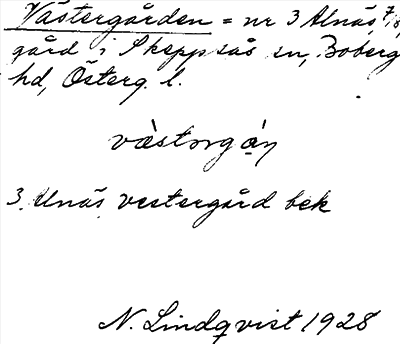 Västergården = nr 3 Alnäs, 7/8
gård i Skeppsås sn, Boberg
hd, Österg. l.
và̀storgá̀ṇ
3. Unäs vestergård bek
N. Lindqvist 1928